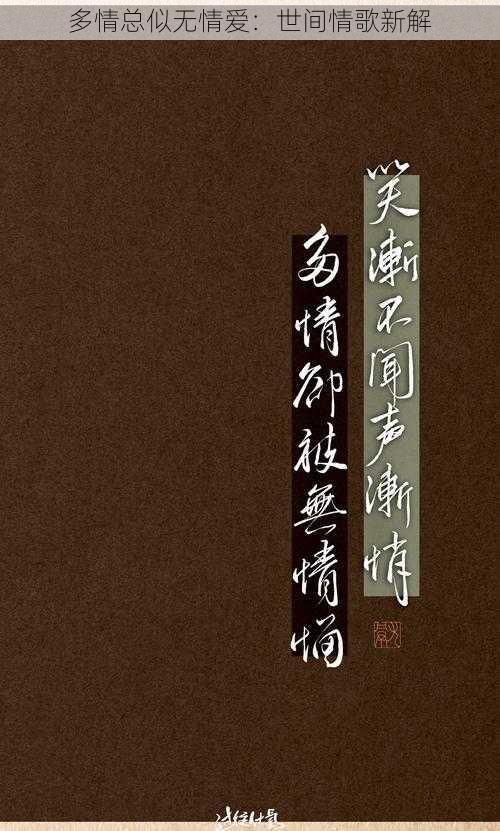 多情总似无情爱：世间情歌新解
笑漸不闻声漸悄
多情卻被無情惱